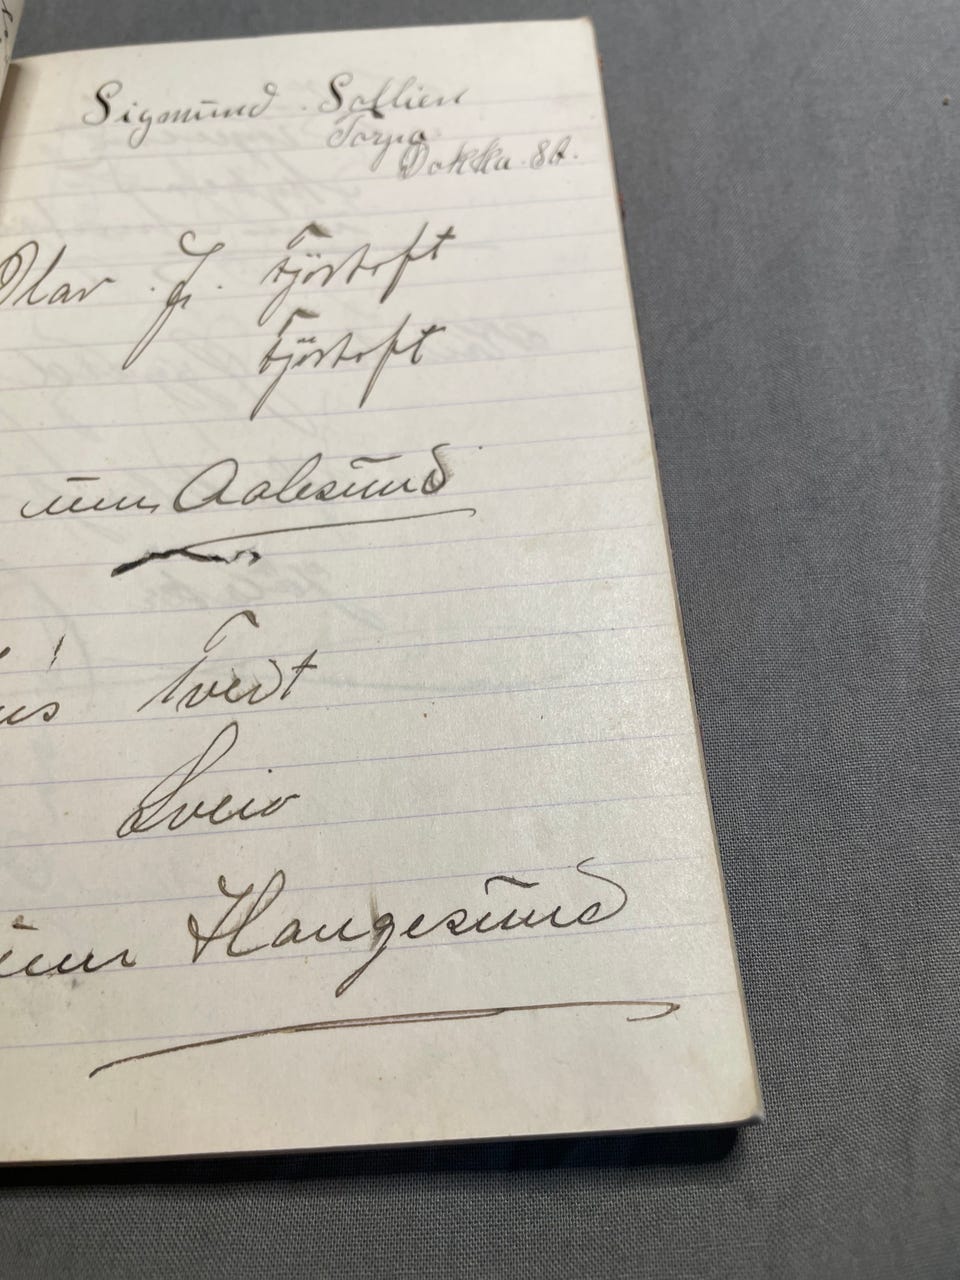 Sigmund Sollien
Torpa
Dokka. St.
Olav J. Fjørtoft
Fjørtoft
Aalesund
Tveit
Sveio
Haugesund